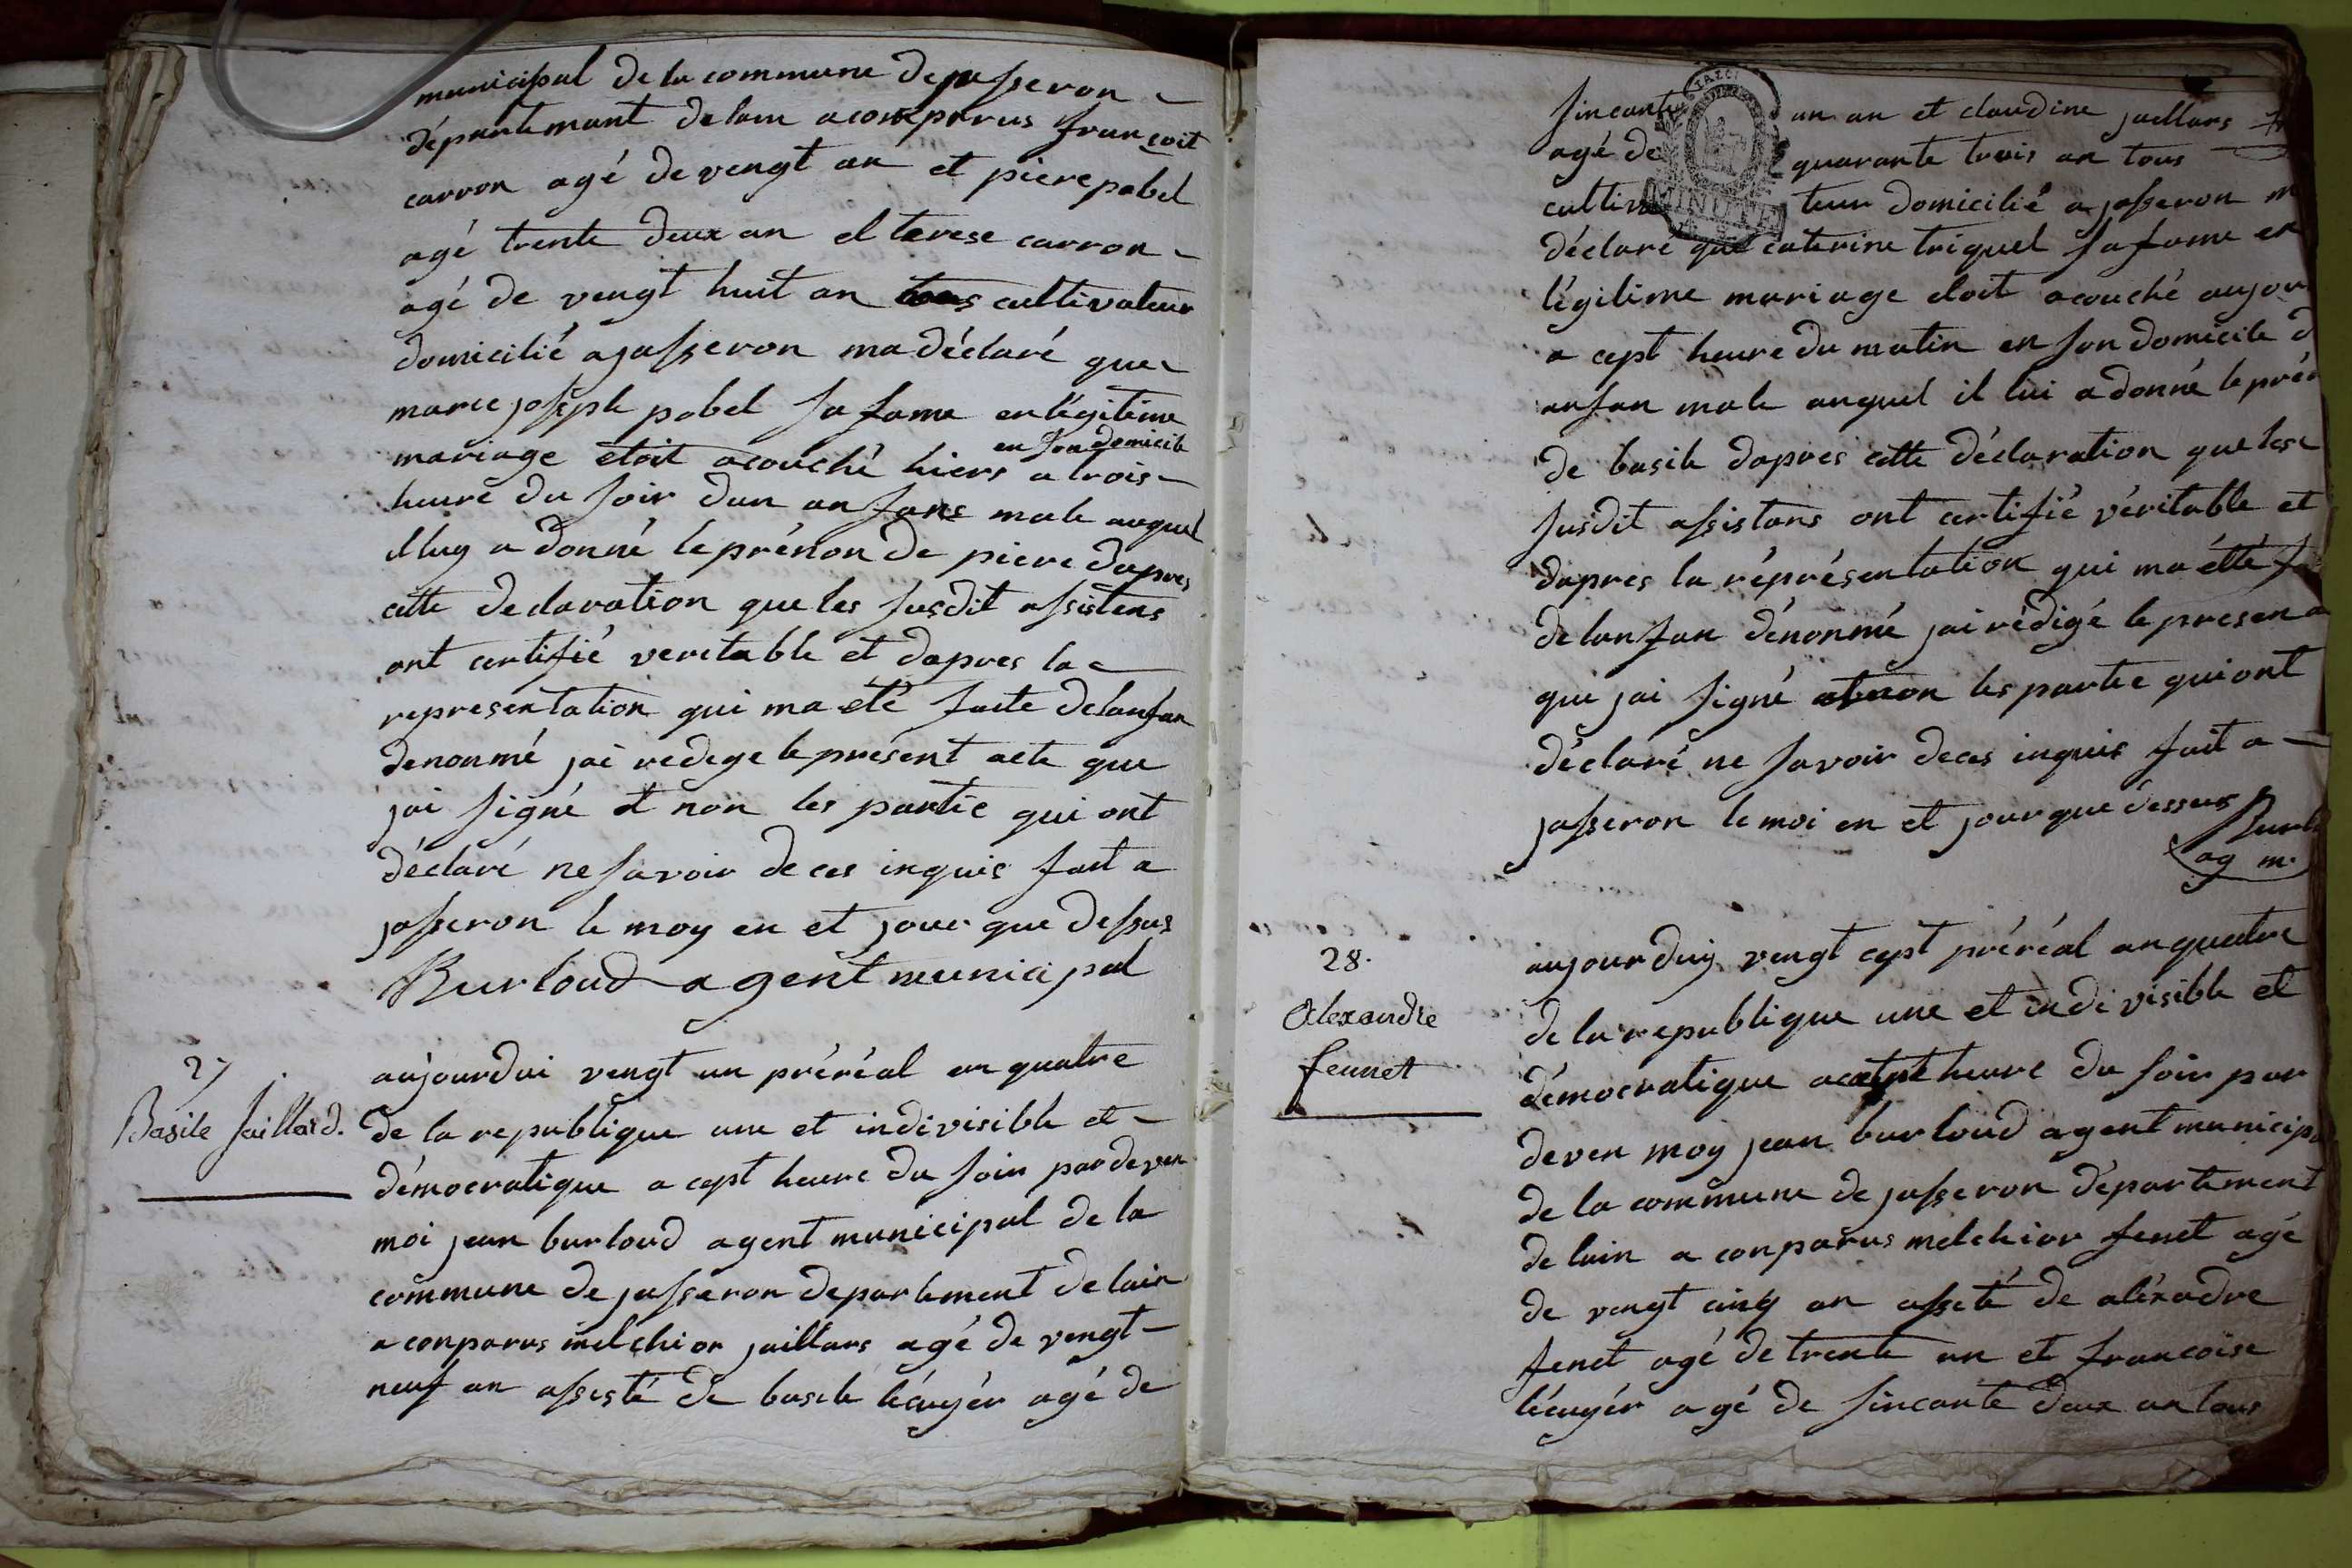 municipal de la commune de jasseron
départemant de lain a comparus françoit
carron agé de vengt an et piere pobel
agé trente deux an et terese carron
agé de vengt huit an tous cultivateur
domicilié a jasseron ma déclaré que
marie joseph pobel sa fame en légitime
en son domicile
mariage étoit acouché hiers a trois
heure du soir dun anfans male auquel
il luy a donné le prénon de piere dapres
cette declaration que les susdit assistens
ont certifié veritable et dapres la
representation qui ma été faite de lanfan
denonmé jai redege le présent acte que
jai signé et non les partie qui ont
déclaré ne savoir de ces inquis fait a
jasseron le moy en et jour que dessus
Burloud agent municipal
27
Basile Jaillard.
aujourdui vengt un préréal an quatre
de la republique une et indivisible et
démocratique a cept heure du soir pardeven
moi jean burloud agent municipal de la
commune de jasseron departement de lain
a conparus melchior jaillars agé de vengt
neuf an assisté de basile lécuyér agé de
sincante un an et claudine jaillars
agé de quarante trois an tous
cultivateur domicilié a jasseron m
déclaré que caterine triquet sa fame en
légitime mariage etoit acouché aujour
a cept heure du matin en son domicile d
anfan male auquel il lui a donné le prén
de basile dapres cette déclaration que les
susdit assistans ont certifié véritable et
dapres la répréséntation qui ma étté fa
de lanfan dénonmé jai rédigé le presen a
que jai signé et non les partie qui ont
déclaré ne savoir de ces inquis fait a
jasseron le moi en et jour que dessus Burl
ag m.
28.
Alexandre
fennet
aujourduy vengt cept préréal an quatre
de la republique une et indivisible et
démocratique a heure du soir par
deven moy jean burloud agent municipa
de la commune de jasseron département
de lain a conparus melchior fenet agé
de vengt cinq an assité de aléxadre
fenet agé de trente an et francoise
lécuyér agé de sincante deux an tous